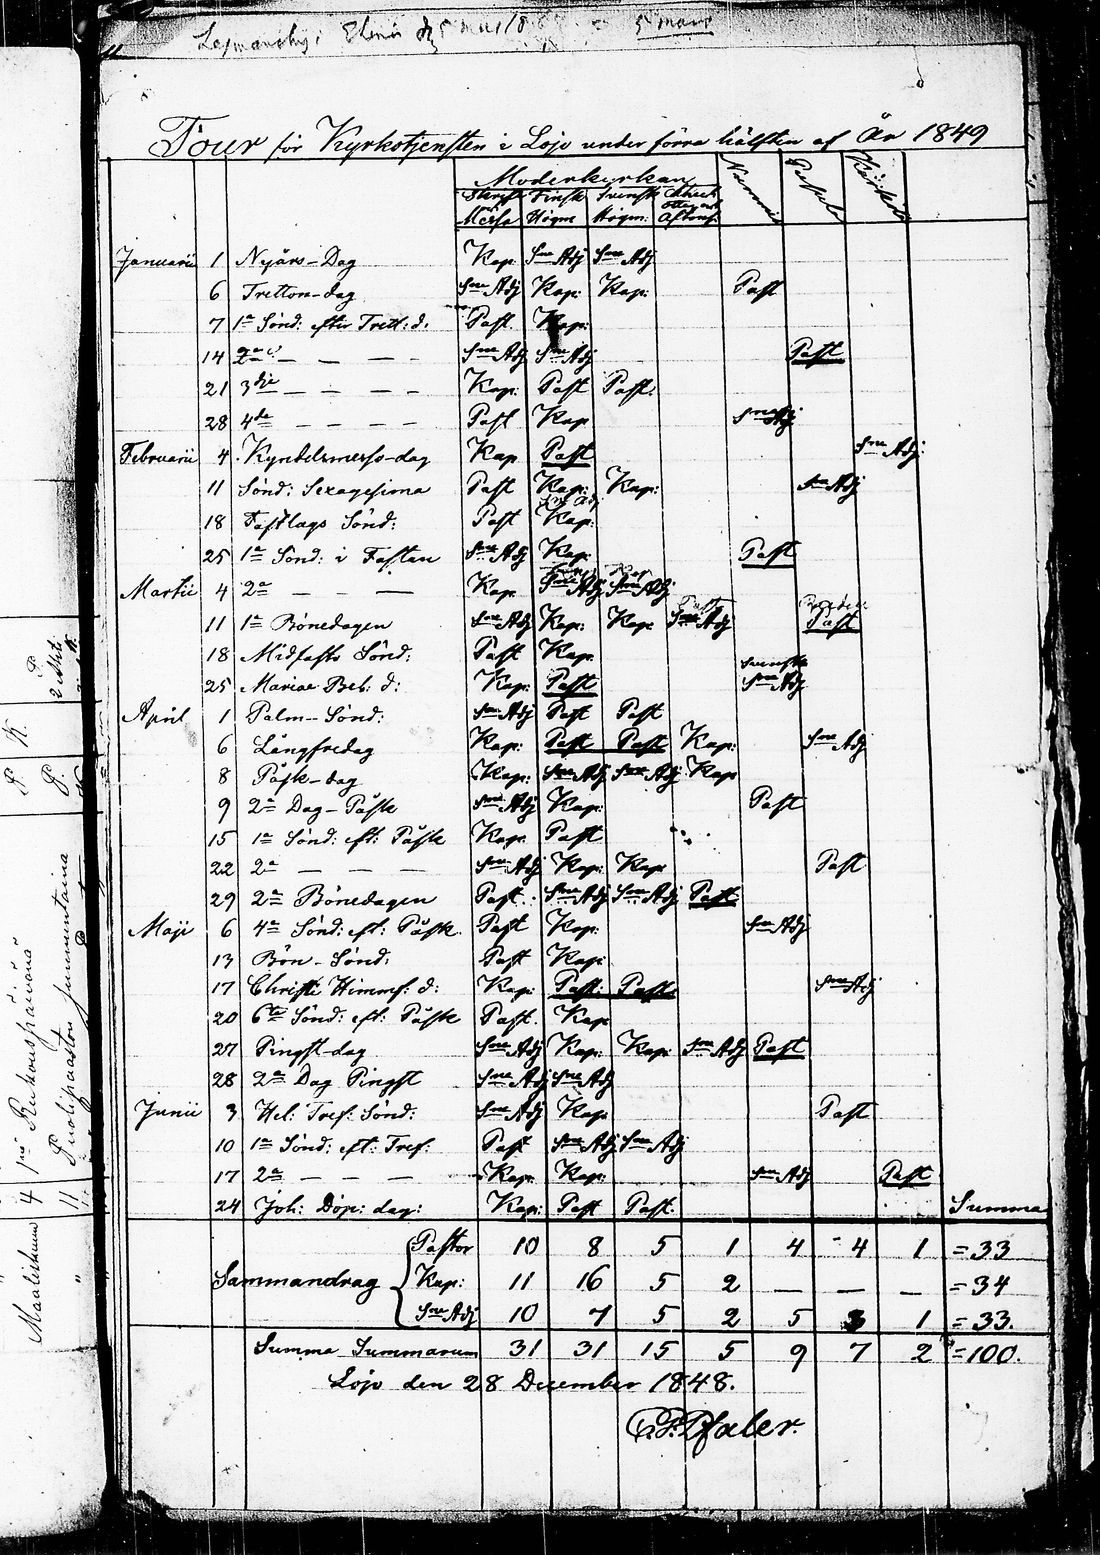 5 mars
Tour för Kyrkotjensten i Lojo under förra hälften af År 1849
Moderkyrkan Nummis Pusula Kärkola
Skrift Finsk Svensk
Messa Högm: Högm: Aftons:
Januarii 1 Nyårs-Dag Kap Sne Adj Sne Adj
6 Tretton-dag Sne Adj Kap: Kap: Past
7 1a Sönd: efter Trett: d: Past Kap:
14 2a — — — — Sne Adj Sne Adj Past
21 3dje — — — — Kap: Past Past
28 4de — — — — Past Kap Sne Adj
Februarii 4 Kyndelsmesso-dag Kap Past Sne Adj
11 Sönd: Sexagesima Past Kap: Kap: Sne Adj
Sne Adj
18 Fastlags Sönd: Past Kap:
25 1a Sönd: i Fastan Sne Adj Kap Past
Martii 4 2a — — — Kap Sne Adj Sne Adj
11 1a Bönedagen Sne Adj Kap: Kap Sne Adj Past
18 Midfasto Sönd: Past Kap
Svenska
25 Mariae Beb: d: Kap: Past Sne Adj
April 1 Palm-Sönd: Sne Adj Past Past
6 Långfredag Kap: Past Past Kap: Sne Adj
8 Påsk-dag Kap: Sne Adj Sne Adj Kap
9 2a Dag-Påsk Sne Adj Kap: Past
15 1a Sönd: eft: Påsk Kap Past
22 2a — — — Sne Adj Kap: Kap Past
29 2a Bönedagen Past Sne Adj Sne Adj Past
Maji 6 4a Sönd: eft: Påsk Past Kap: Sne Adj
13 Bön-Sönd: Past Kap:
17 Christi Himmf: d: Kap: Past: Past Sne Adj
20 6te Sönd: eft: Påsk Past Kap
27 Pingst-dag Sne Adj Kap: Kap: Sne Adj Past
28 2a Dag Pingst Sne Adj Sne Adj
Junii 3 Hel: Tref: Sönd: Sne Adj Kap Past
10 1a Sönd: eft: Tref: Past Sne Adj Sne Adj
17 2a — — — Kap: Kap: Sne Adj Past
24 Joh: Döp: dag: Kap: Past Past Summa
Pastor 10 8 5 1 4 4 1 = 33
Sammandrag Kap: 11 16 5 2 — — — = 34
Sne Adj 10 7 5 2 5 3 1 = 33.
Summa Summarum 31 31 15 5 9 7 2 = 100.
Lojo den 28 December 1848.